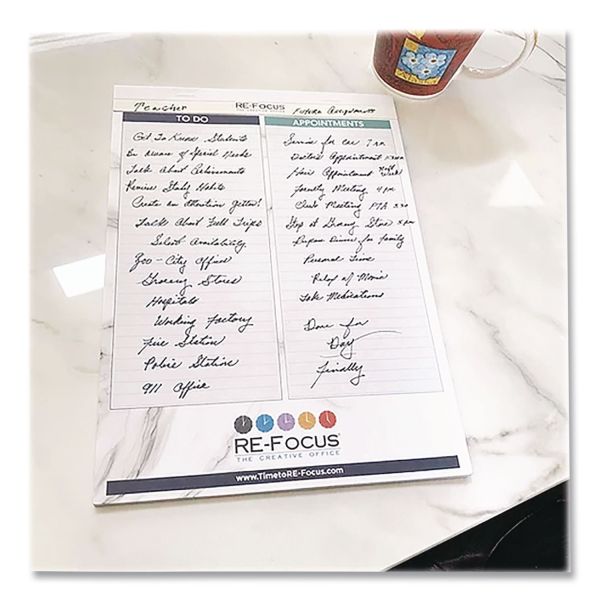 Teacher
RE-FOCUS
THE CREATIVE OFFICE
Future Assignments
TO DO
Get To Know Students
Be Aware of Special Needs
Talk About Achievements
Review Study Habits
Create an Attention Getter!
Talk About Field Trips
Select Availability
Zoo - City Office
Grocery Stores
Hospitals
Working Factory
Fire Station
Police Station
911 Office
APPOINTMENTS
Service for car 7 am
Doctor's Appointment
Hair Appointment Next Week
Family Meeting 4 pm
Club Meeting PTA
Stop at Grocery Store
Prepare Dinner for family
Personal Time
Relax w/ Movie
Take Medications
Done for
Day
Finally
RE-FOCUS
THE CREATIVE OFFICE
www.TimetoRE-Focus.com